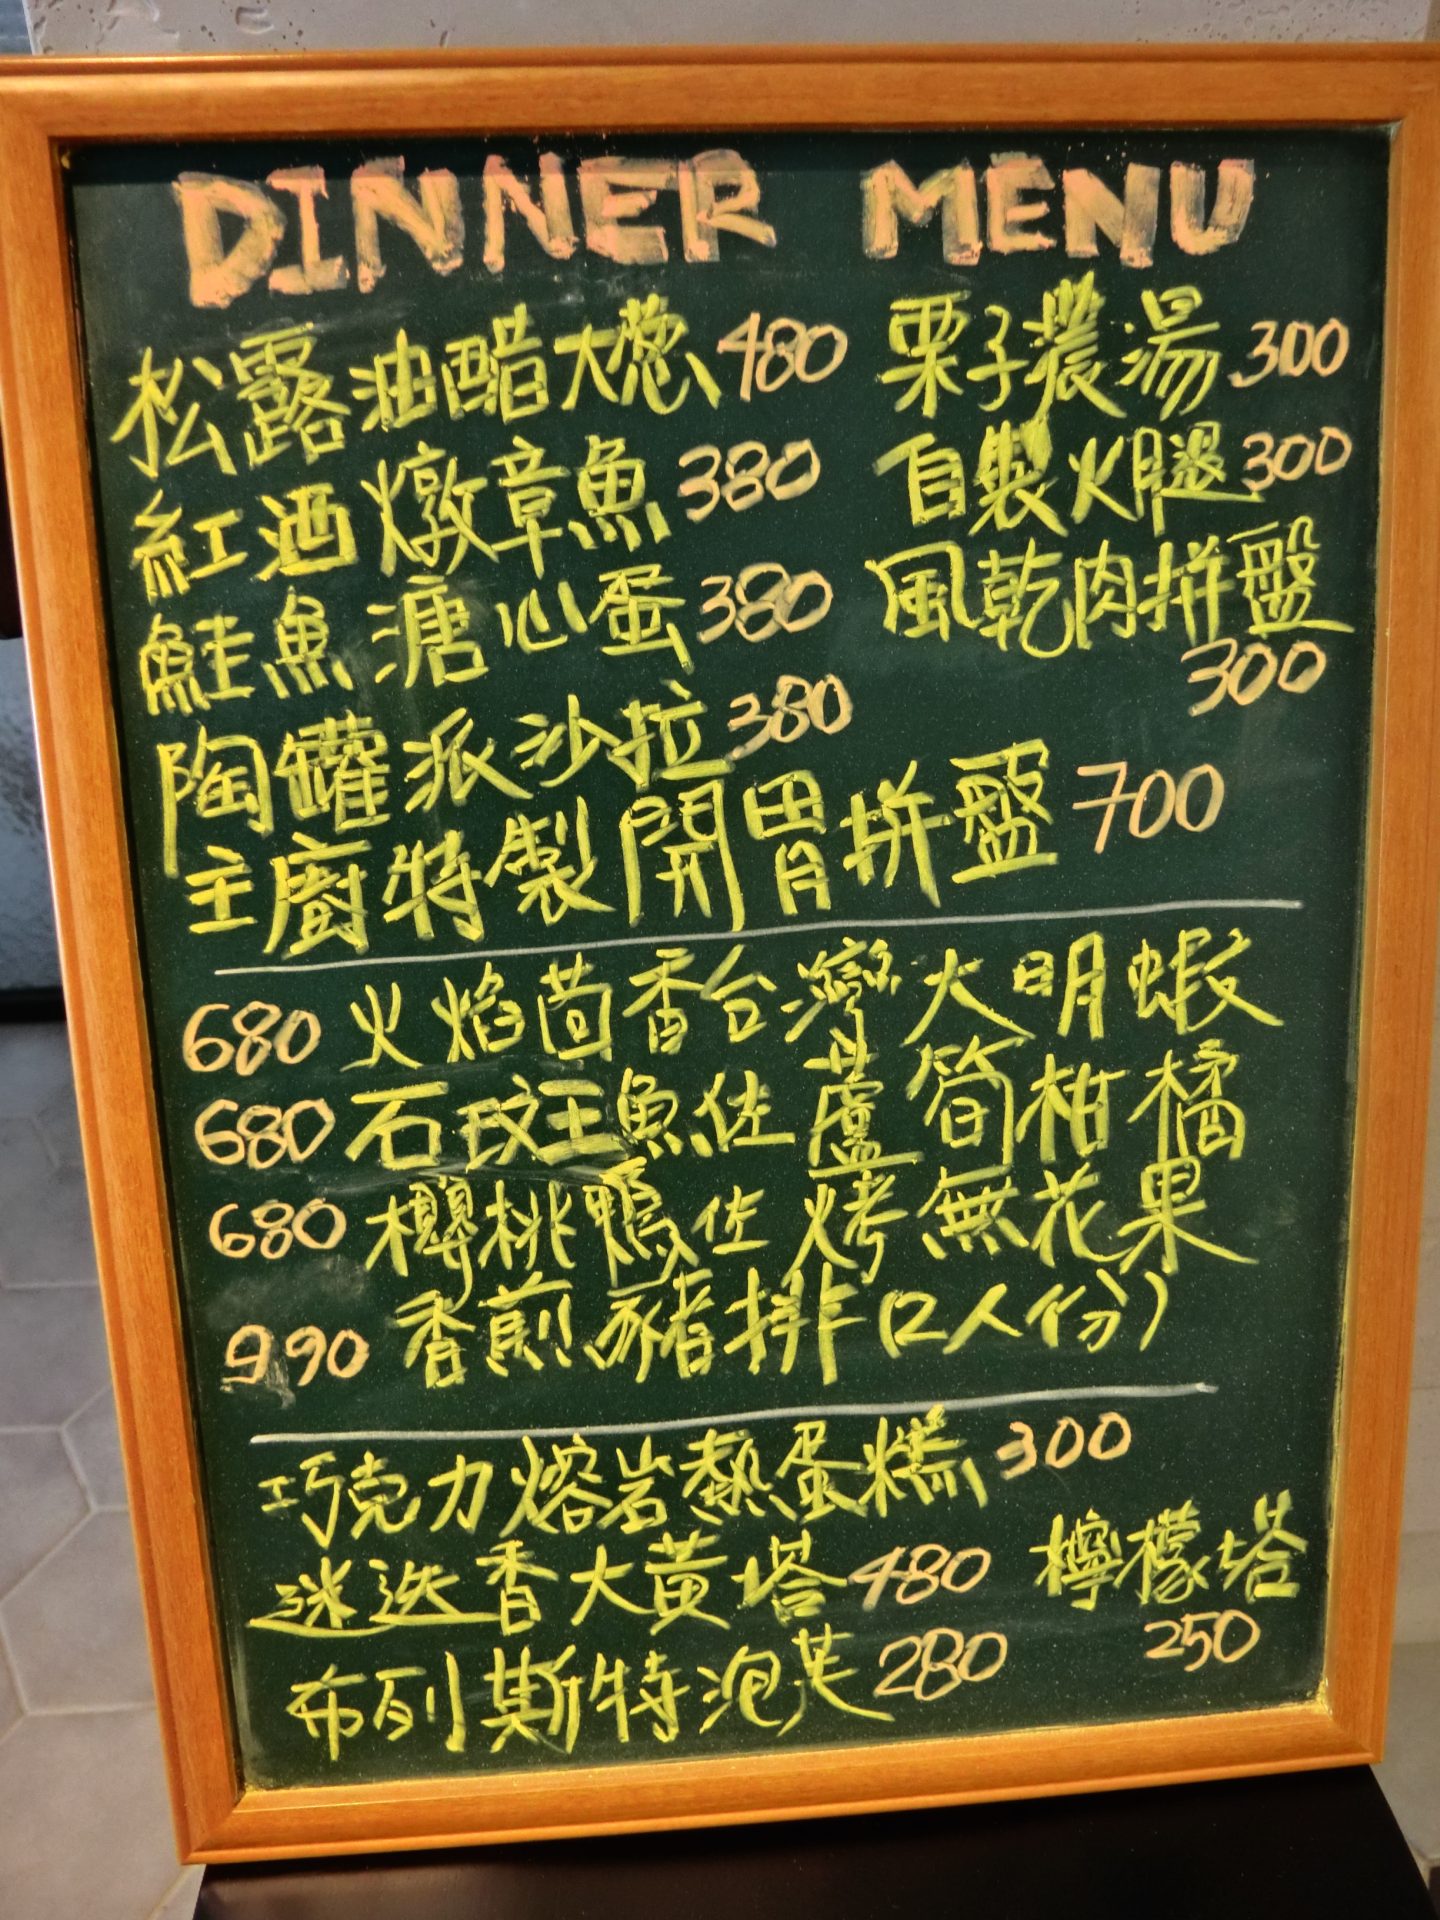 DINNER MENU
松露油醋大蔥 480
栗子濃湯 300
紅酒燉章魚 380
自製火腿 300
鮭魚溏心蛋 380
風乾肉拼盤
300
陶罐派沙拉 380
主廚特製開胃拼盤 700
680 火焰茴香台灣大明蝦
680 石斑魚佐蘆筍柑橘
680 櫻桃鴨佐烤無花果
990 香煎豬排(2人份)
巧克力熔岩熱蛋糕 300
迷迭香大黃塔 480
檸檬塔
250
布列斯特泡芙 280